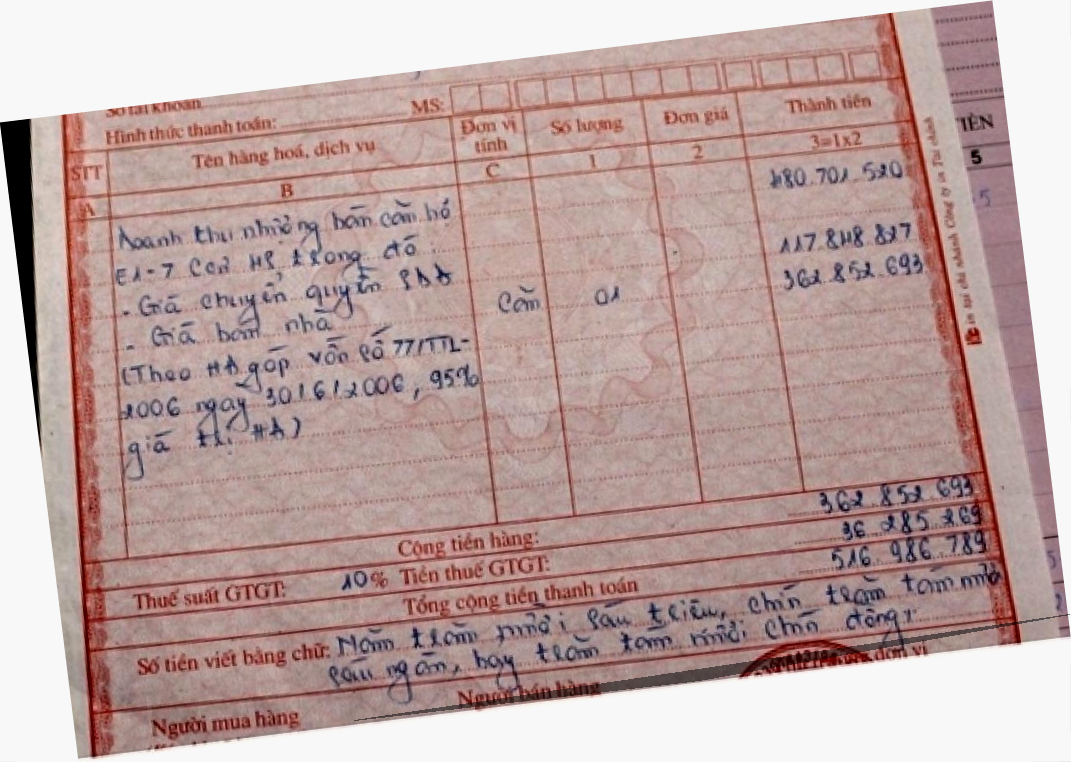 Số tài khoản
Hình thức thanh toán: MS:
STT Tên hàng hoá, dịch vụ Đơn vị tính Số lượng Đơn giá Thành tiền
A B C 1 2 3=1x2
Doanh thu nhượng bán căn hộ 480.701.520
E1-7 CC2 trong đó:
- Giá chuyển quyền SDĐ 117.848.827
- Giá bán nhà Căn 01 362.852.693
(Theo HĐ góp vốn số 77/TTL-
2006 ngày 30/6/2006, 95%
giá trị HĐ)
Cộng tiền hàng: 362.852.693
Thuế suất GTGT: 10% Tiền thuế GTGT: 36.285.269
Tổng cộng tiền thanh toán 516.986.789
Số tiền viết bằng chữ: Năm trăm mười sáu triệu, chín trăm tám mươi
sáu ngàn, bảy trăm tám mươi chín đồng
Người mua hàng Người bán hàng đơn vị
IÊN
5
5
in tại chi nhánh Công ty in Tài chính
5
2